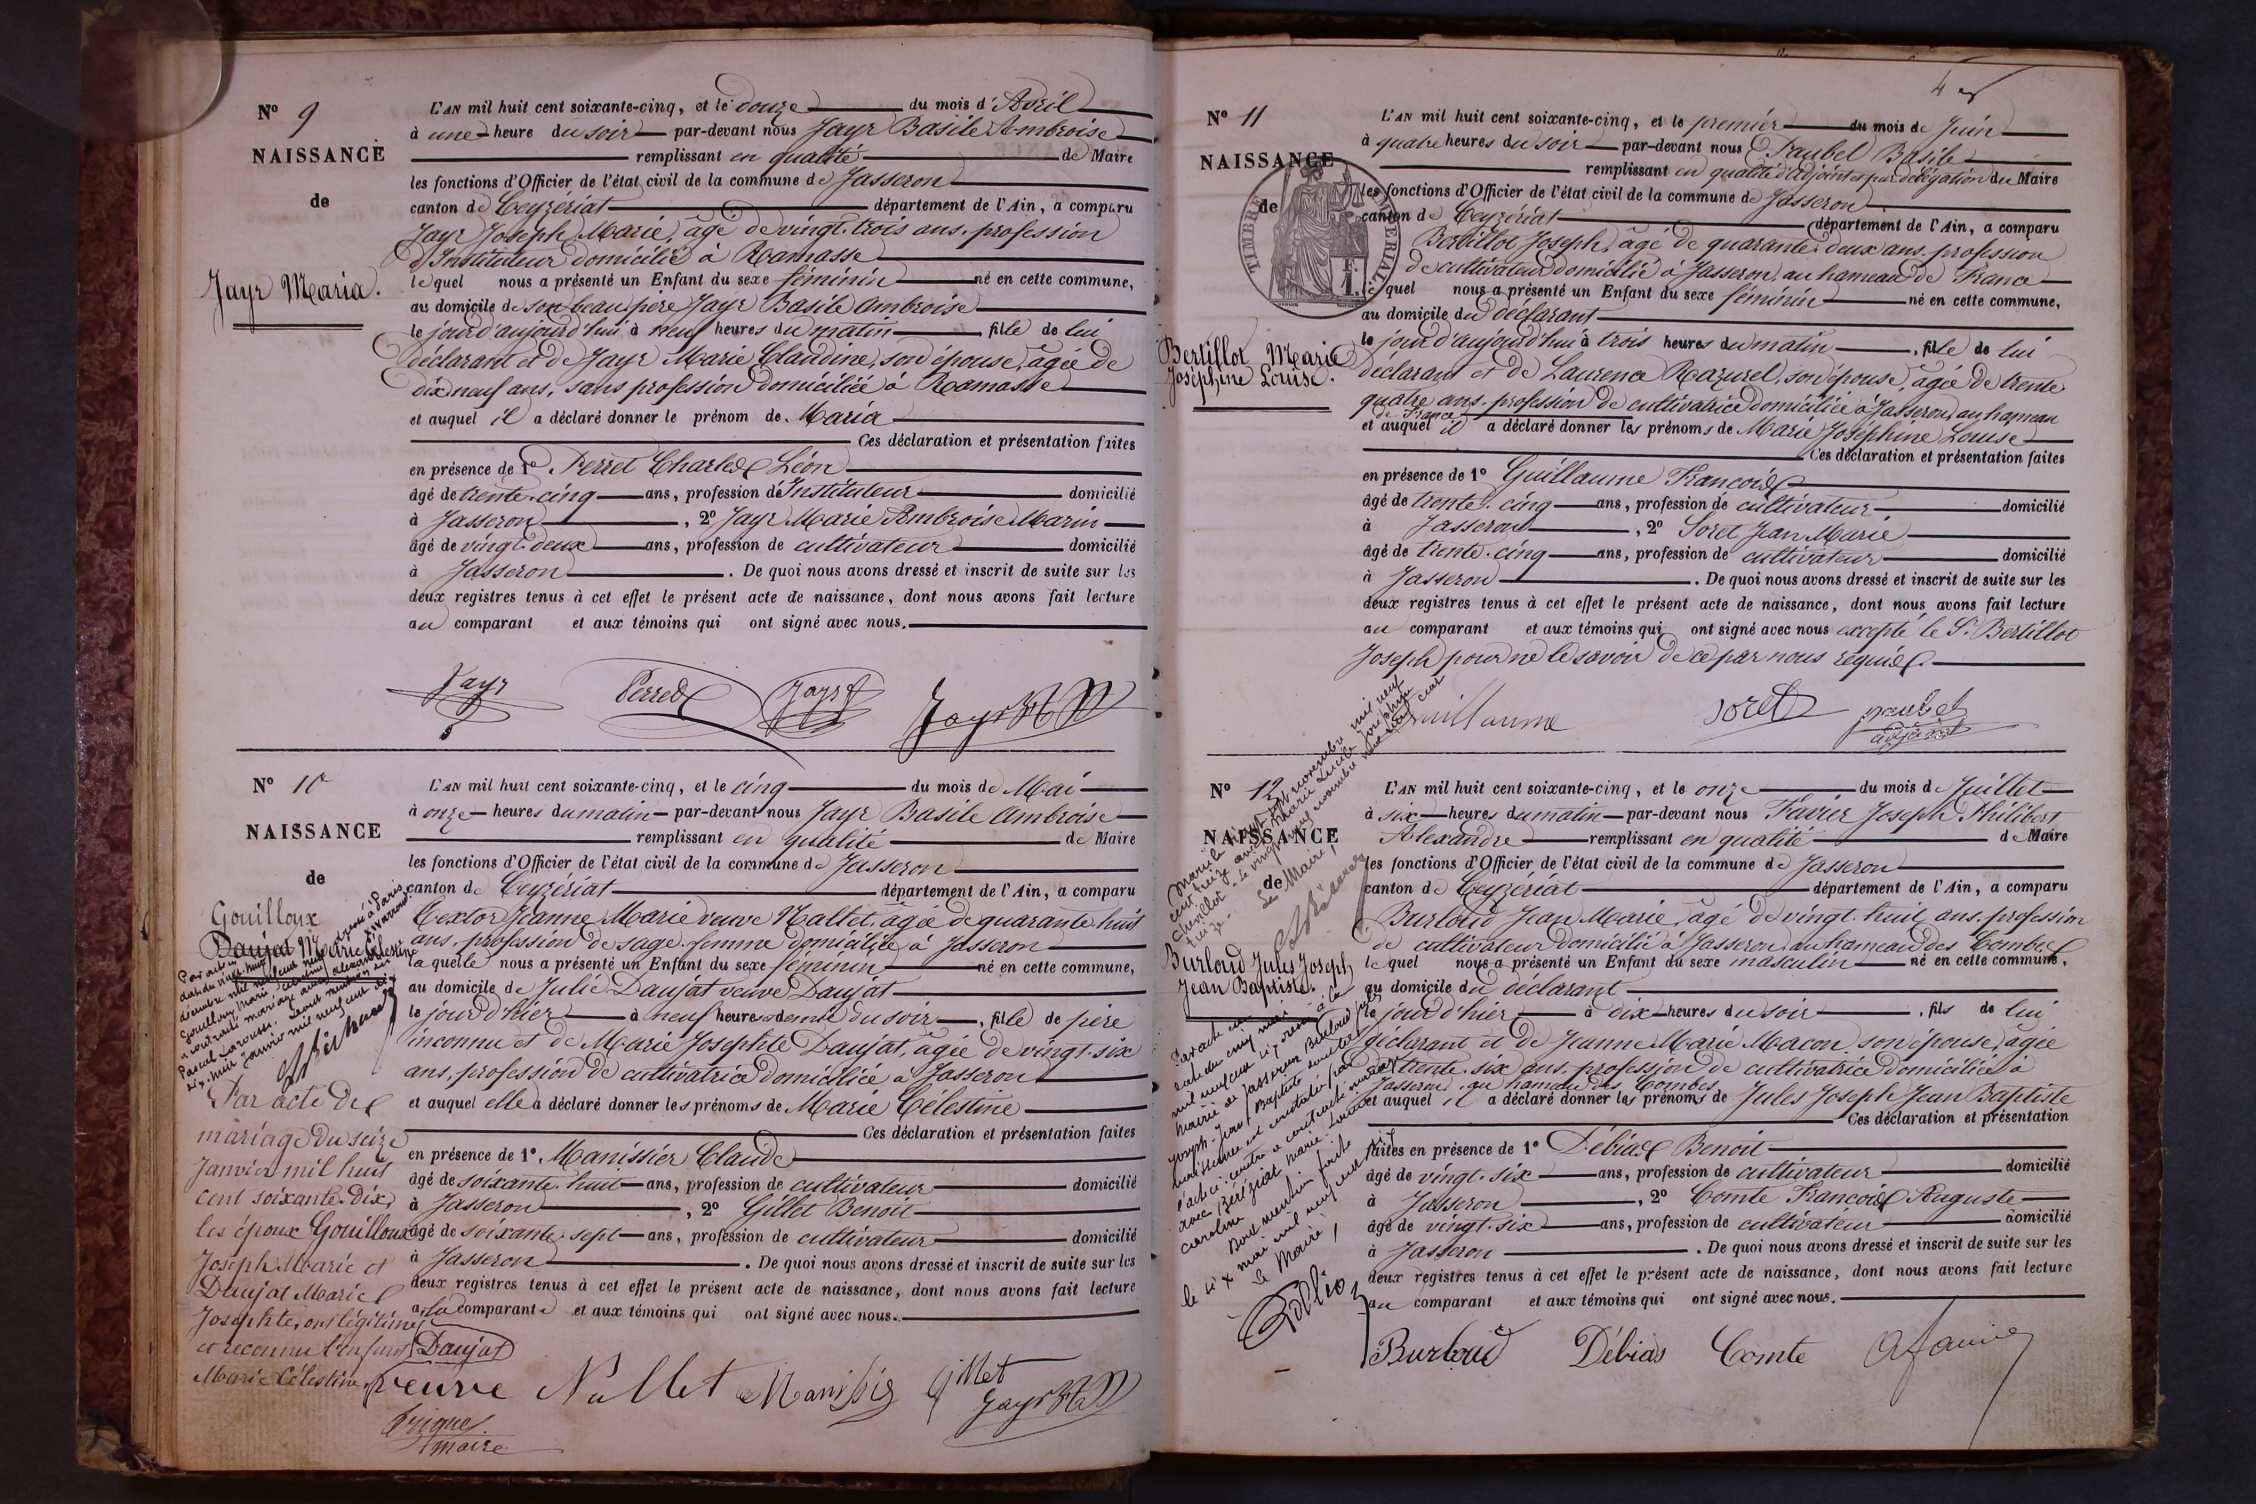 N° 9
NAISSANCE
de
Jayr Maria.
L'AN mil huit cent soixante-cinq, et le douze du mois d'Avril
à une heure du soir par-devant nous Jayr Basile Ambroise
remplissant en qualité de Maire
les fonctions d'Officier de l'état civil de la commune de Jasseron
canton de Ceyzériat département de l'Ain, a comparu
Jayr Joseph Marie, âgé de vingt-trois ans, profession
d'Instituteur domicilié à Ramasse
lequel nous a présenté un Enfant du sexe féminin né en cette commune,
au domicile de son beau père Jayr Basile Ambroise
le jour d'aujourd'hui à neuf heures du matin, fille de lui
déclarant et de Jayr Marie Claudine, son épouse, âgée de
dix neuf ans, sans profession domiciliée à Ramasse
et auquel il a déclaré donner le prénom de Maria
Ces déclaration et présentation faites
en présence de 1° Perret Charles Léon
âgé de trente-cinq ans, profession d'Instituteur domicilié
à Jasseron, 2° Jayr Marie Ambroise Marin
âgé de vingt-deux ans, profession de cultivateur domicilié
à Jasseron. De quoi nous avons dressé et inscrit de suite sur les
deux registres tenus à cet effet le présent acte de naissance, dont nous avons fait lecture
au comparant et aux témoins qui ont signé avec nous.
Jayr Perret Jayr Jayr
N° 10
NAISSANCE
de
Gouilloux
Daujat Marie Célestine
Par acte de
mariage du seize
Janvier mil huit
cent soixante-dix,
les époux Gouilloux
Joseph Marie et
Daujat Marie
Josephte, ont légitimé
et reconnu l'enfant
Marie Célestine.
L'AN mil huit cent soixante-cinq, et le cinq du mois de Mai
à onze heures du matin par-devant nous Jayr Basile Ambroise
remplissant en qualité de Maire
les fonctions d'Officier de l'état civil de la commune de Jasseron
canton de Ceyzériat département de l'Ain, a comparu
Textor Jeanne Marie veuve Nallet, âgée de quarante huit
ans, profession de sage-femme domiciliée à Jasseron
laquelle nous a présenté un Enfant du sexe féminin né en cette commune,
au domicile de Julie Daujat veuve Daujat
le jour d'hier à neuf heures et demie du soir, fille de père
inconnu et de Marie Josephte Daujat, âgée de vingt-six
ans, profession de cultivatrice domiciliée à Jasseron
et auquel elle a déclaré donner les prénoms de Marie Célestine
Ces déclaration et présentation faites
en présence de 1° Manissier Claude
âgé de soixante-huit ans, profession de cultivateur domicilié
à Jasseron, 2° Gillet Benoit
âgé de soixante-sept ans, profession de cultivateur domicilié
à Jasseron. De quoi nous avons dressé et inscrit de suite sur les
deux registres tenus à cet effet le présent acte de naissance, dont nous avons fait lecture
à la comparante et aux témoins qui ont signé avec nous.
Daujat
veuve Nallet Manissier Gillet
Jayr
maire
N° 11
NAISSANCE
de
TIMBRE IMPERIAL
1 F.
Bertillot Marie
Joséphine Louise.
L'AN mil huit cent soixante-cinq, et le premier du mois de Juin
à quatre heures du soir par-devant nous Paubel Basile
remplissant en qualité d'adjoint et par délégation du Maire
les fonctions d'Officier de l'état civil de la commune de Jasseron
canton de Ceyzériat département de l'Ain, a comparu
Bertillot Joseph, âgé de quarante-deux ans, profession
de cultivateur domicilié à Jasseron, au hameau de France
lequel nous a présenté un Enfant du sexe féminin né en cette commune,
au domicile du déclarant
le jour d'aujourd'hui à trois heures du matin, fille de lui
déclarant et de Laurence Razurel, son épouse, âgée de trente-
quatre ans, profession de cultivatrice domiciliée à Jasseron, au hameau
de France
et auquel il a déclaré donner les prénoms de Marie Joséphine Louise
Ces déclaration et présentation faites
en présence de 1° Guillaume François
âgé de trente-cinq ans, profession de cultivateur domicilié
à Jasseron, 2° Soret Jean Marie
âgé de trente-cinq ans, profession de cultivateur domicilié
à Jasseron. De quoi nous avons dressé et inscrit de suite sur les
deux registres tenus à cet effet le présent acte de naissance, dont nous avons fait lecture
au comparant et aux témoins qui ont signé avec nous excepté le Sr. Bertillot
Joseph pour ne le savoir de ce par nous requis.
guillaume soret paubel
adjoint
N° 12
NAISSANCE
de
Burloud Jules Joseph
Jean Baptiste.
L'AN mil huit cent soixante-cinq, et le onze du mois de Juillet
à six heures du matin par-devant nous Favier Joseph Philibert
Alexandre remplissant en qualité de Maire
les fonctions d'Officier de l'état civil de la commune de Jasseron
canton de Ceyzériat département de l'Ain, a comparu
Burloud Jean Marie, âgé de vingt-huit ans, profession
de cultivateur domicilié à Jasseron, au hameau des Combes
lequel nous a présenté un Enfant du sexe masculin né en cette commune,
au domicile du déclarant
le jour d'hier à dix heures du soir, fils de lui
déclarant et de Jeanne Marie Macon, son épouse, âgée
de trente-six ans, profession de cultivatrice domiciliée à
Jasseron, au hameau des Combes
et auquel il a déclaré donner les prénoms de Jules Joseph Jean Baptiste
Ces déclaration et présentation
faites en présence de 1° Débias Benoit
âgé de vingt-six ans, profession de cultivateur domicilié
à Jasseron, 2° Comte François Auguste
âgé de vingt-six ans, profession de cultivateur domicilié
à Jasseron. De quoi nous avons dressé et inscrit de suite sur les
deux registres tenus à cet effet le présent acte de naissance, dont nous avons fait lecture
au comparant et aux témoins qui ont signé avec nous.
Burloud Débias Comte